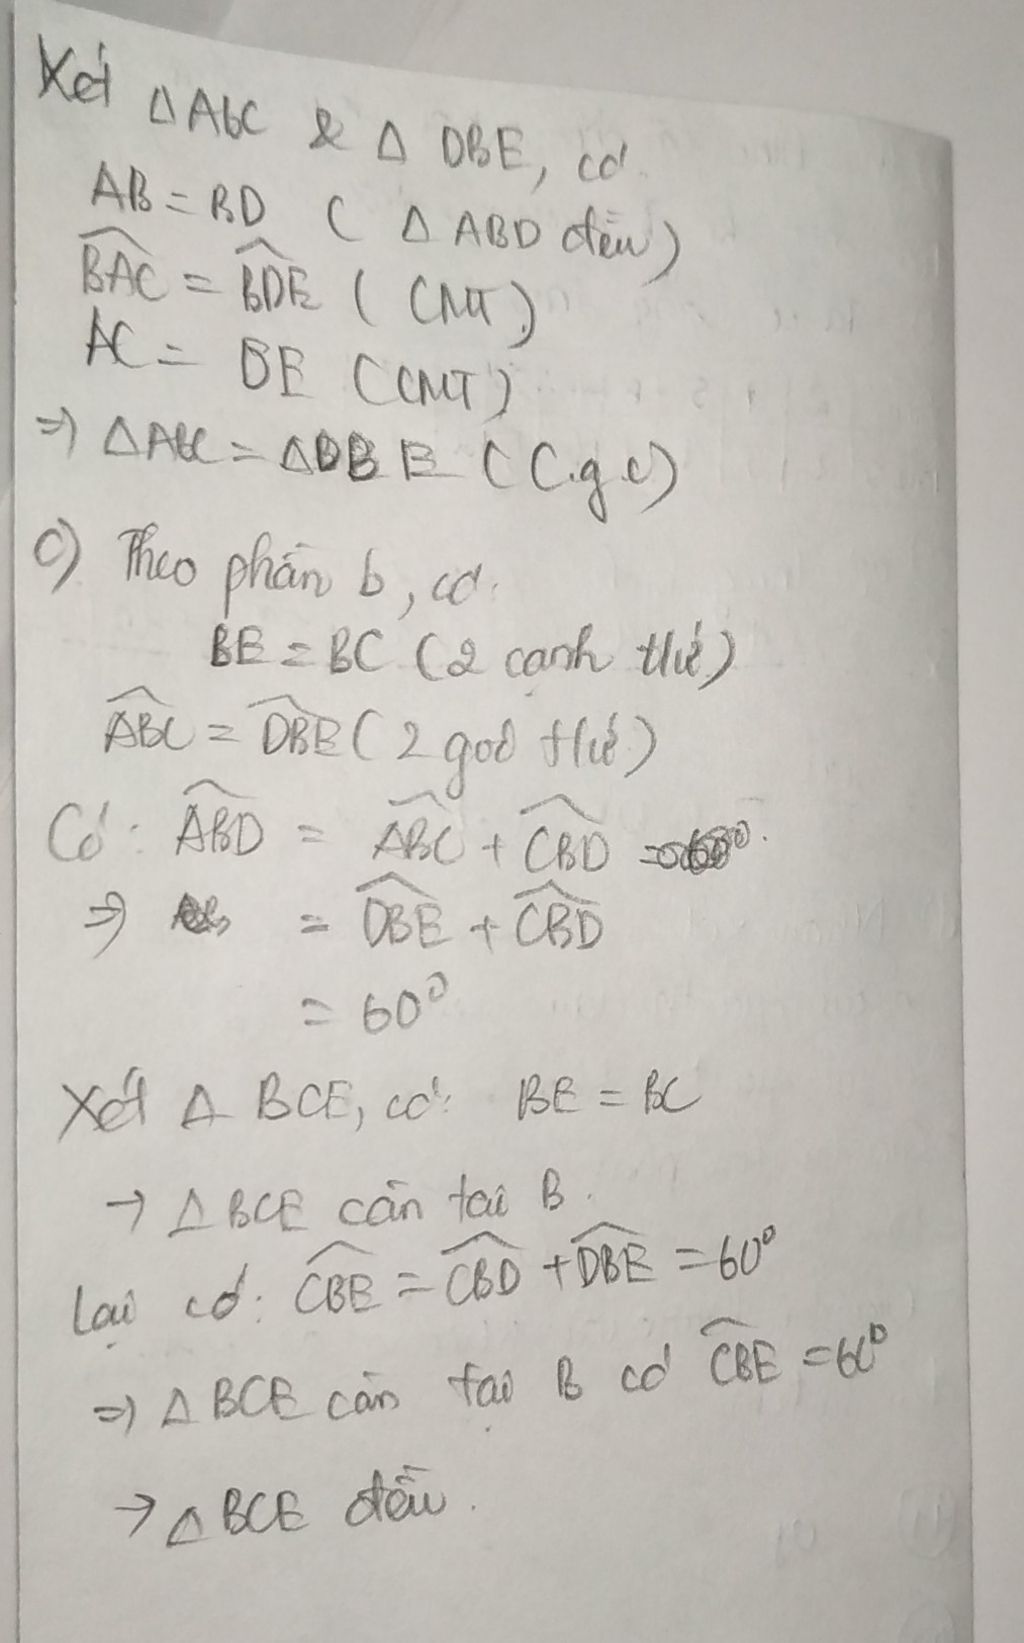 Xét ΔABC & Δ DBE, có
AB = BD ( Δ ABD đều)
BAC = BDE ( CMT)
AC = DE (CMT)
=> ΔABC = ΔDBE (C.g.c)
c) Theo phần b, có:
BE = BC (2 cạnh t/ứ)
ABC = DBE (2 góc t/ứ)
Có: ABD = ABC + CBD
=> = DBE + CBD
= 60°
Xét Δ BCE, có: BE = BC
→ Δ BCE cân tại B.
Lại có: CBE = CBD + DBE = 60°
=> Δ BCE cân tại B có CBE = 60°
→ Δ BCE đều.